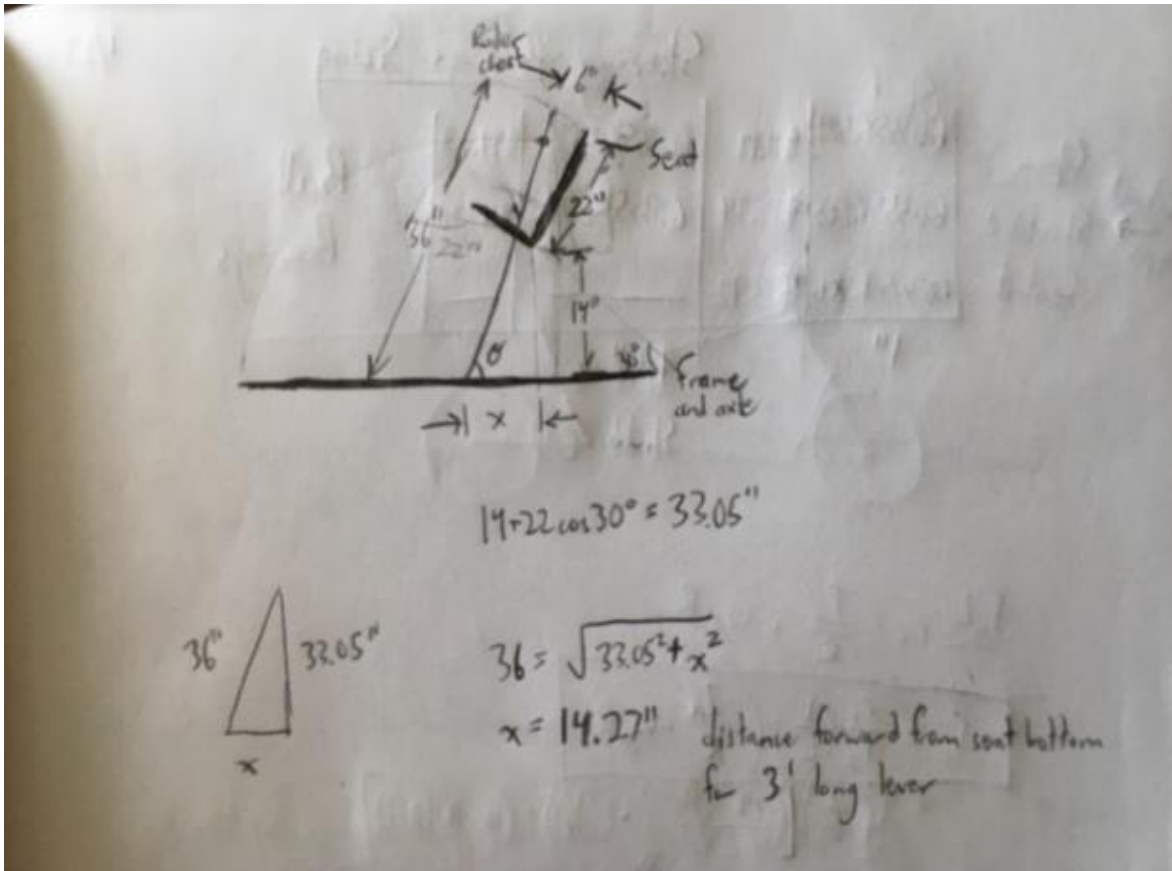 Rider
chest
6"
Seat
22"
36"
22"
14"
θ
Frame
and axle
x
14+22cos30° = 33.05"
36"
33.05"
x
36 = √33.05² + x²
x = 14.27" distance forward from seat bottom
for 3' long lever